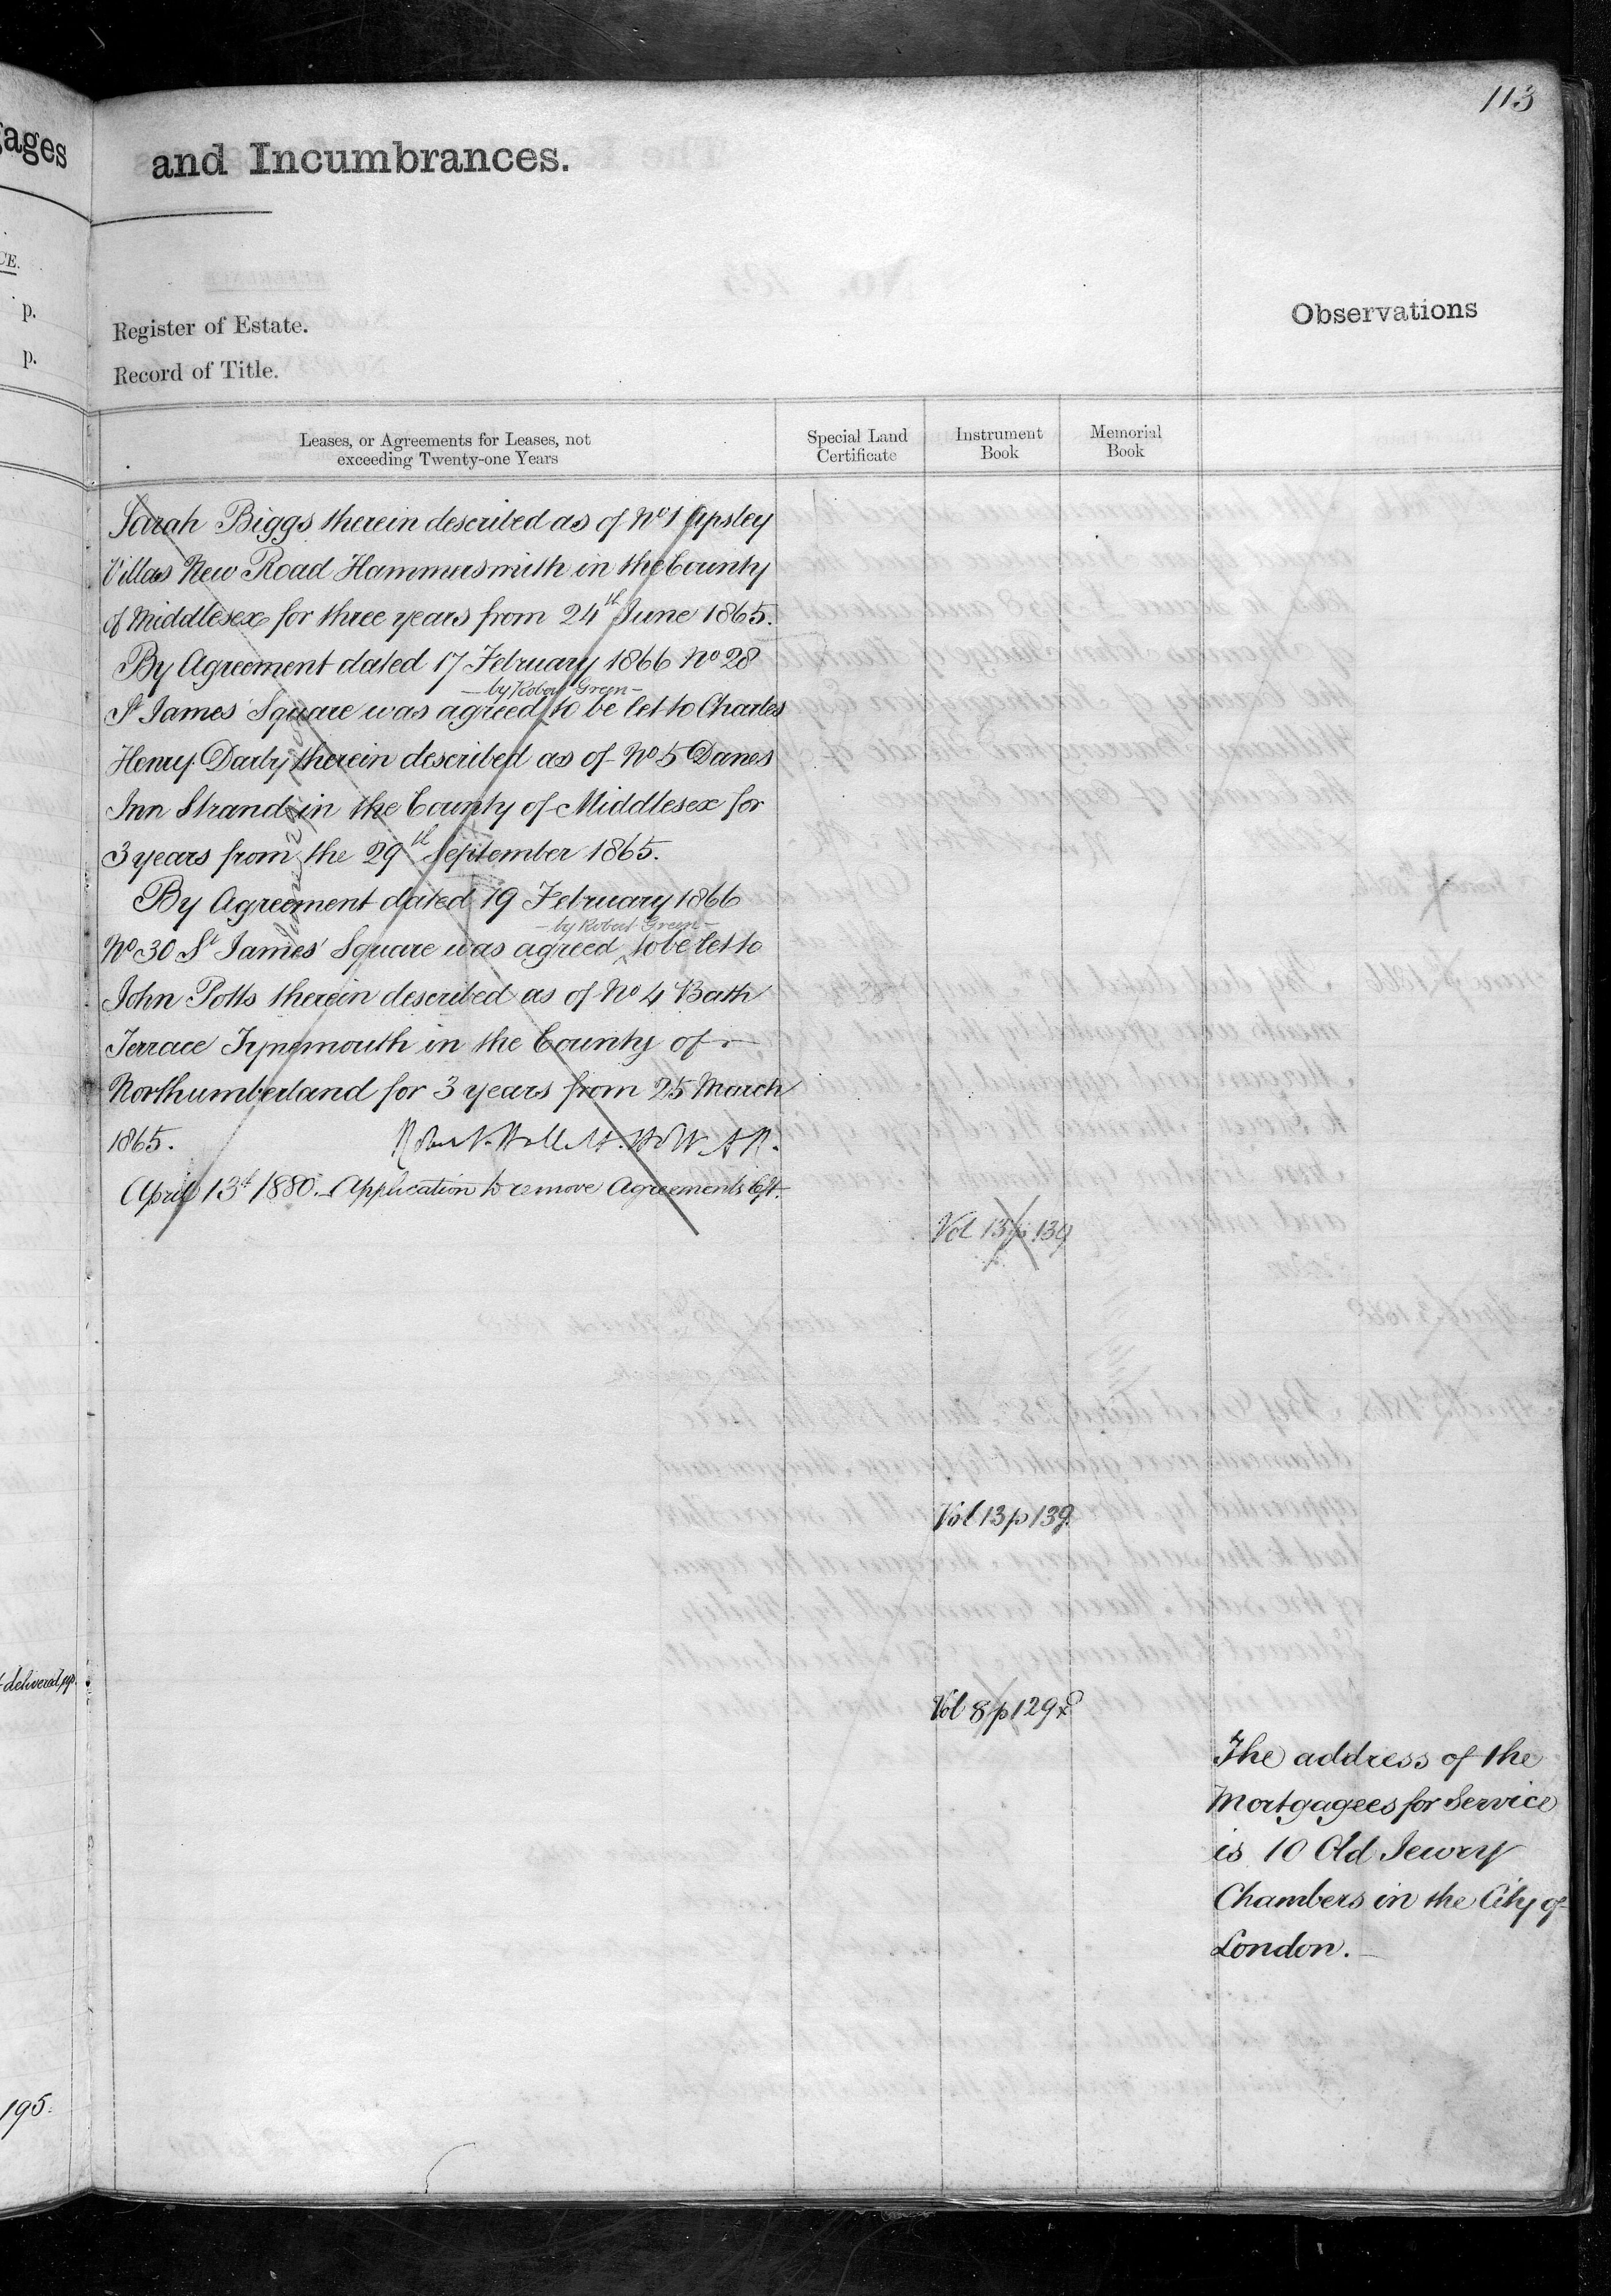 113
gages
and Incumbrances.
CE.
p.
p.
Register of Estate.
Record of Title.
Observations
Leases, or Agreements for Leases, not
exceeding Twenty-one Years
Special Land
Certificate
Instrument
Book
Memorial
Book
Sarah Biggs therein described as of No 1 Apsley
Villas New Road Hammersmith in the County
of Middlesex for three years from 24th June 1865.
By Agreement dated 17 February 1866 No 28
- by Robert Green -
St James' Square was agreed to be let to Charles
Henry Darby therein described as of No 5 Danes
Inn Strand in the County of Middlesex for
3 years from the 29th September 1865.
By Agreement dated 19 February 1866
- by Robert Green -
No 30 St James' Square was agreed to be let to
John Potts therein described as of No 4 Bath
Terrace Tynemouth in the County of
Northumberland for 3 years from 25 March
1865.
April 13th 1880. Application to remove Agreements
Vol 13 p 139
Vol 13 p 139.
delivered
Vol 8 p 129
The address of the
Mortgagees for Service
is 10 Old Jewry
Chambers in the City of
London.
195.